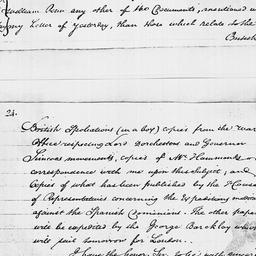 William Penn any other of the Documents, mentioned in
my Letter of yesterday, than those which relate to the
British
24.
British Spoliations (in a box) copies from the War
Office respecting Lord Dorchesters and Governor
Simcoes movements, copies of Mr. Hammonds
correspondence with me upon this subject; and
Copies of what has been published by the House
of Representatives concerning the Expeditions meditated
against the Spanish Dominions. The other papers
will be expedited by the George Barckley which
will sail tomorrow for London.
I have the honor, Sir, to be, with sincere